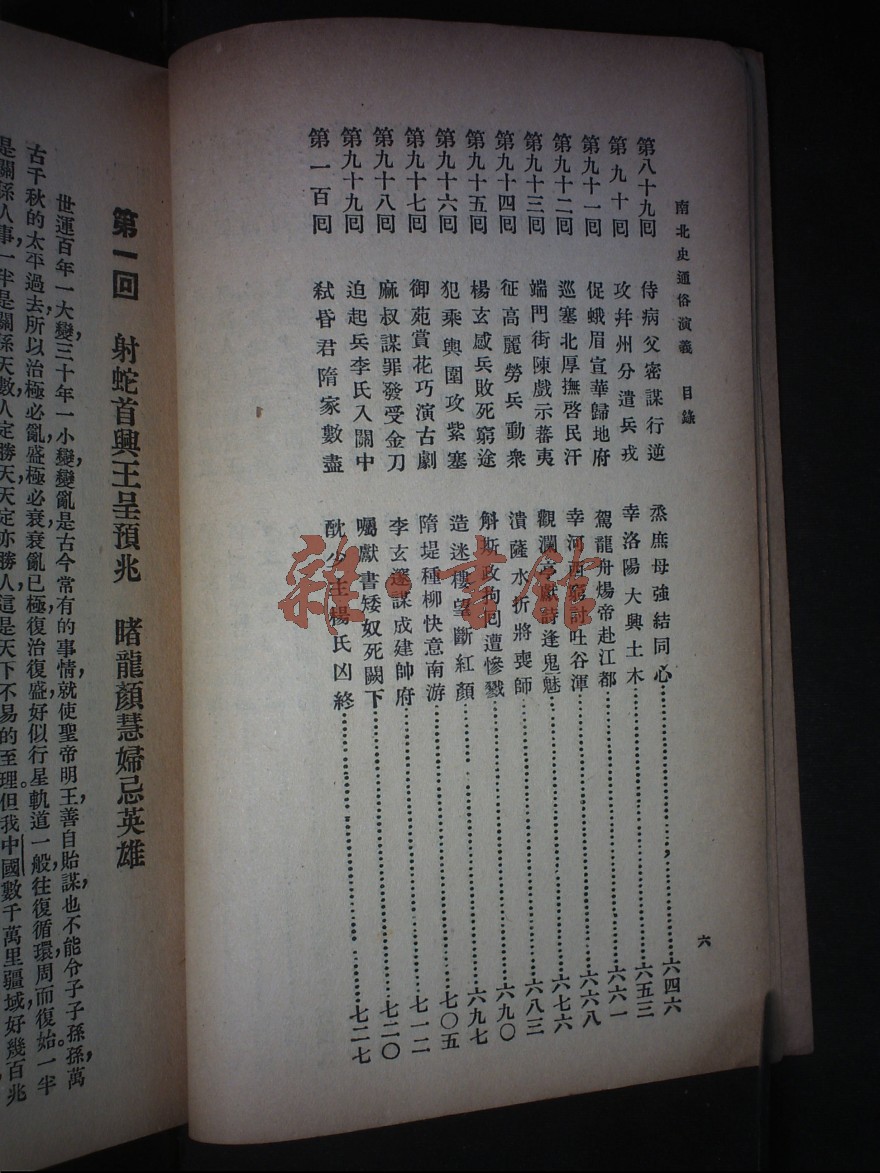 南北史通俗演義 目錄 六
第八十九回 侍病父密謀行逆 烝庶母強結同心 六四六
第九十回 攻幷州分遣兵戎 幸洛陽大興土木 六五三
第九十一回 促蛾眉宣華歸地府 駕龍舟煬帝赴江都 六六一
第九十二回 巡塞北厚撫啓民汗 幸河西窮討吐谷渾 六六八
第九十三回 端門街陳戲示蕃夷 觀瀾亭獻詩逢鬼魅 六七六
第九十四回 征高麗勞兵動衆 潰薩水折將喪師 六八三
第九十五回 楊玄感兵敗死窮途 斛斯政拘回遭慘戮 六九〇
第九十六回 犯乘輿圍攻紫塞 造迷樓望斷紅顏 六九七
第九十七回 御苑賞花巧演古劇 隋堤種柳快意南游 七〇五
第九十八回 麻叔謀罪發受金刀 李玄邃謀成建帥府 七一二
第九十九回 迫起兵李氏入關中 囑獻書矮奴死闕下 七二〇
第一百回 弒昏君隋家數盡 酖少主楊氏凶終 七二七
雜·書館
第一回 射蛇首興王呈預兆 睹龍顏慧婦忌英雄
世運百年一大變,三十年一小變,變亂是古今常有的事情,就使聖帝明王,善自貽謀,也不能令子子孫孫,萬
古千秋的太平過去,所以治極必亂,盛極必衰,衰亂已極,復治復盛,好似行星軌道一般,往復循環,周而復始。一半
是關係人事,一半是關係天數,人定勝天,天定亦勝人,這是天下不易的至理。但我中國數千萬里疆域,好幾百兆